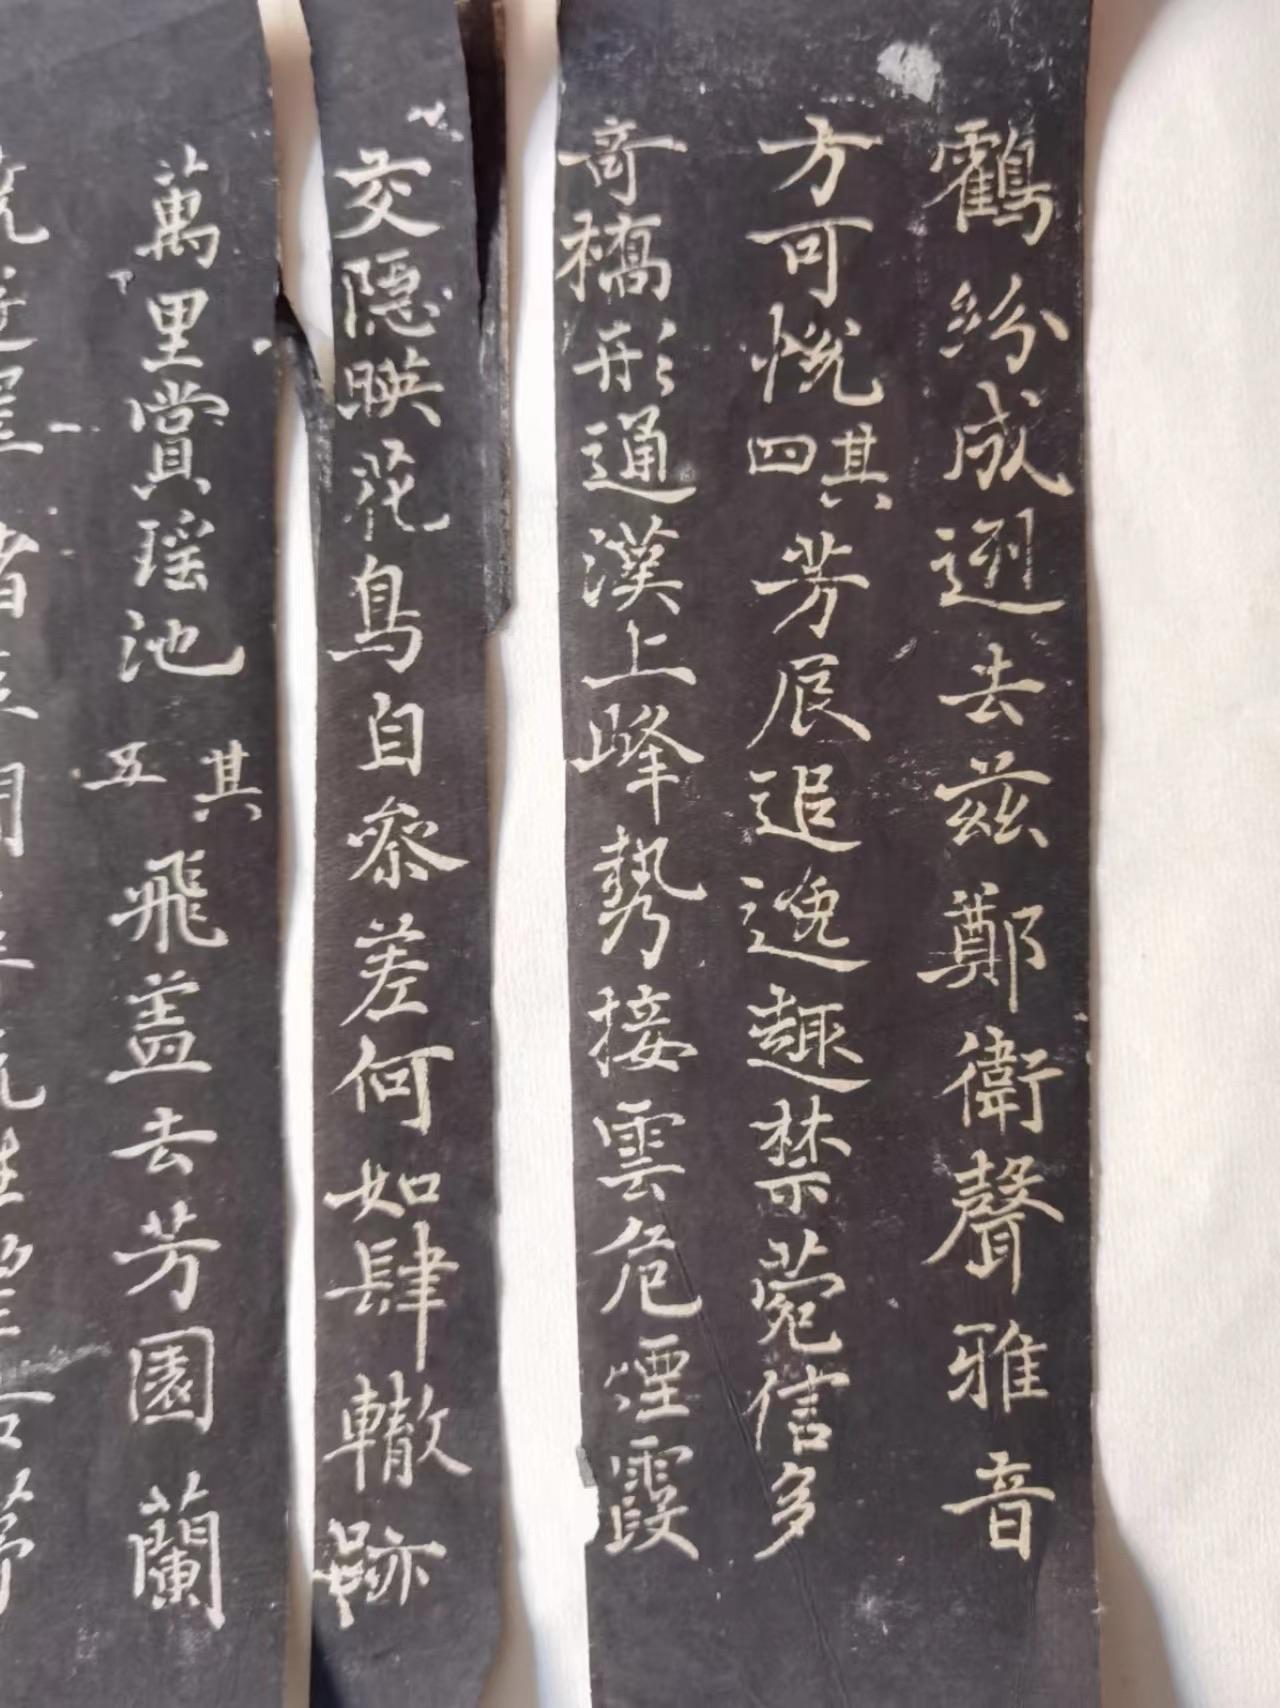 鸖紛成迾去茲鄭衛聲雅音
方可悅其四芳辰追逸趣禁菀信多
竒橋形通漢上峰勢接雲危煙霞
交隱映花鳥自叅差何如肆轍跡
萬里賞瑤池其五飛盖去芳園蘭